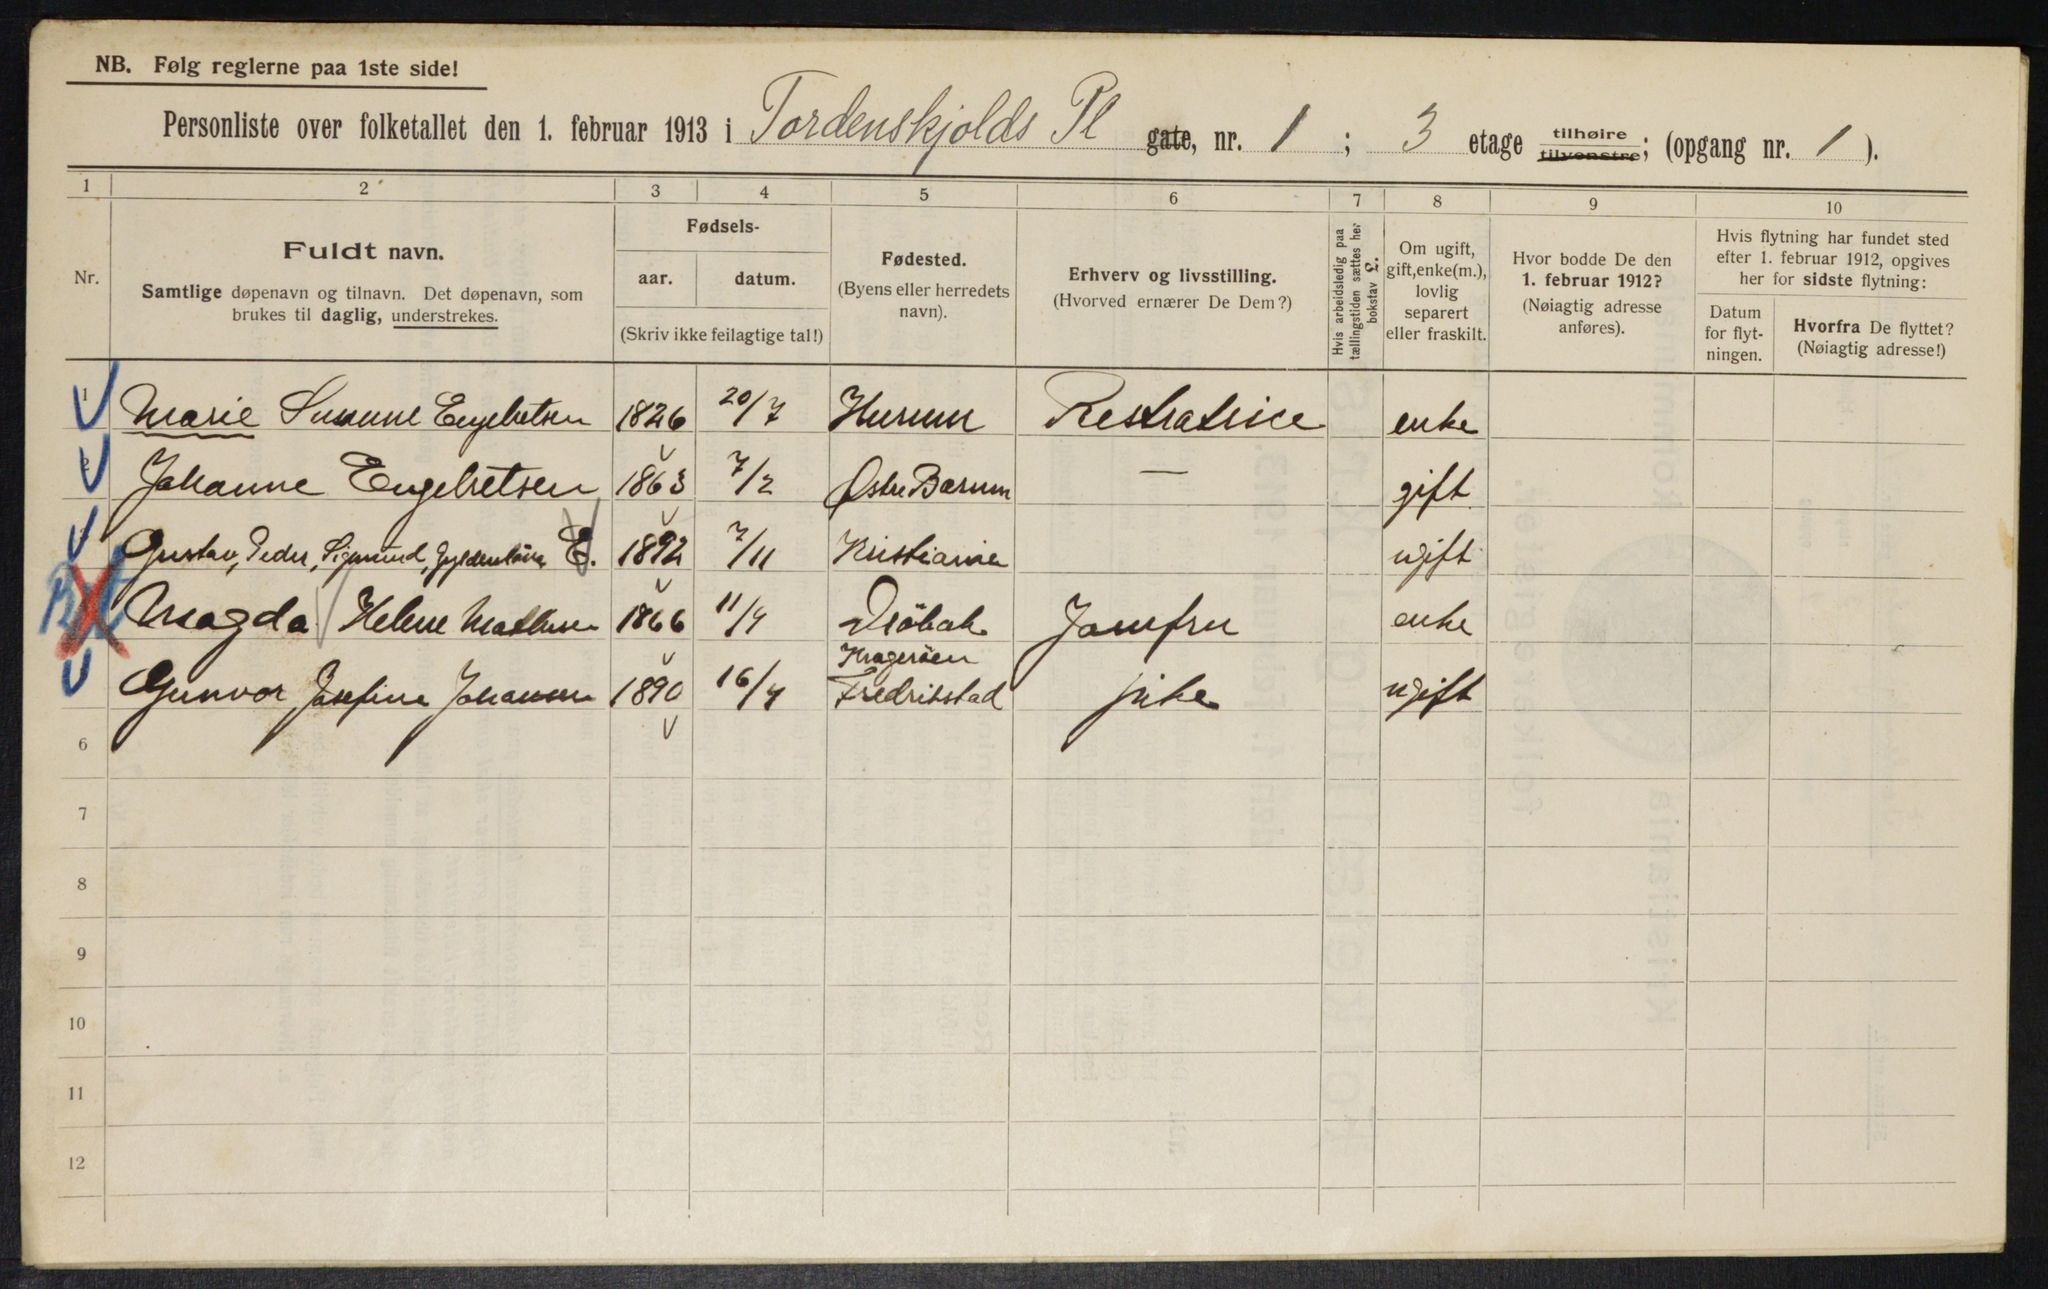 NB. Følg reglerne paa 1ste side!
Personliste over folketallet den 1. februar 1913 i Tordenskjolds Pl gate, nr. 1; 3 etage tilhøire tilvenstre; (opgang nr. 1).
1 2 3 4 5 6 7 8 9 10
Nr.
Fuldt navn.
Samtlige døpenavn og tilnavn. Det døpenavn, som
brukes til daglig, understrekes.
Fødsels-
aar.
datum.
(Skriv ikke feilagtige tal!)
Fødested.
(Byens eller herredets
navn).
Erhverv og livsstilling.
(Hvorved ernærer De Dem?)
Hvis arbeidsledig paa
tællingstiden sættes her
bokstav L.
Om ugift,
gift, enke(m.),
lovlig
separert
eller fraskilt.
Hvor bodde De den
1. februar 1912?
(Nøiagtig adresse
anføres).
Hvis flytning har fundet sted
efter 1. februar 1912, opgives
her for sidste flytning:
Datum
for flyt-
ningen.
Hvorfra De flyttet?
(Nøiagtig adresse!)
1 Marie Susanne Engebretsen 1826 20/7 Hurum enke
2 Johanne Engebretsen 1863 7/2 Østre Bærum — gift
Gustav, Peder, Sigmund, Gyldenløve E. 1892 7/11 Kristiania ugift
Magda Helene 1866 11/4 Drøbak Jomfru enke
Gunvor Josefine Johansen 1890 16/4 Kragerøen Fredrikstad pike ugift
6
7
8
9
10
11
12